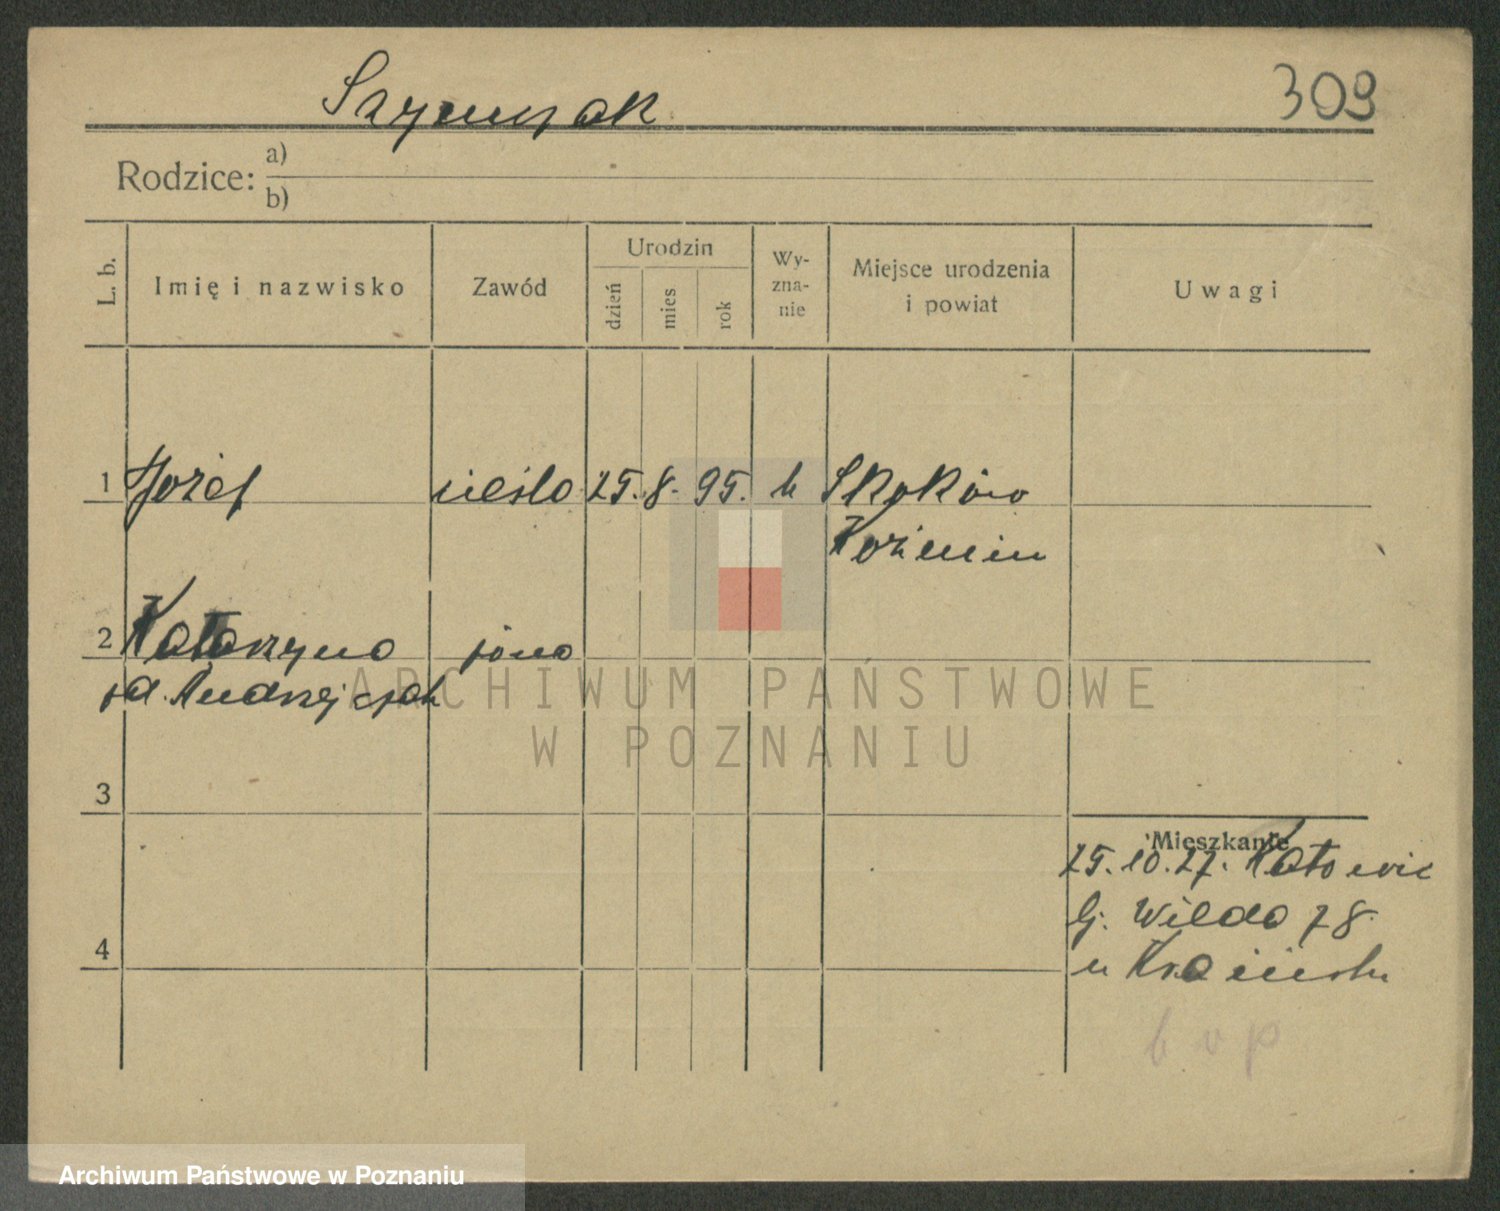 Szymczak
309
Rodzice: a)
b)
L. b.
Imię i nazwisko
Zawód
Urodzin
dzień
mies
rok
Wy-
zna-
nie
Miejsce urodzenia
i powiat
Uwagi
1 Józef cieśla 25. 8. 95. k Skoków
Koźmin
2 Katarzyna żona
zd. Andrzejczak
3
4
Mieszkanie
25. 10. 27. Katowic
G. Wilda 78.
u
b v p
ARCHIWUM PAŃSTWOWE
W POZNANIU
Archiwum Państwowe w Poznaniu